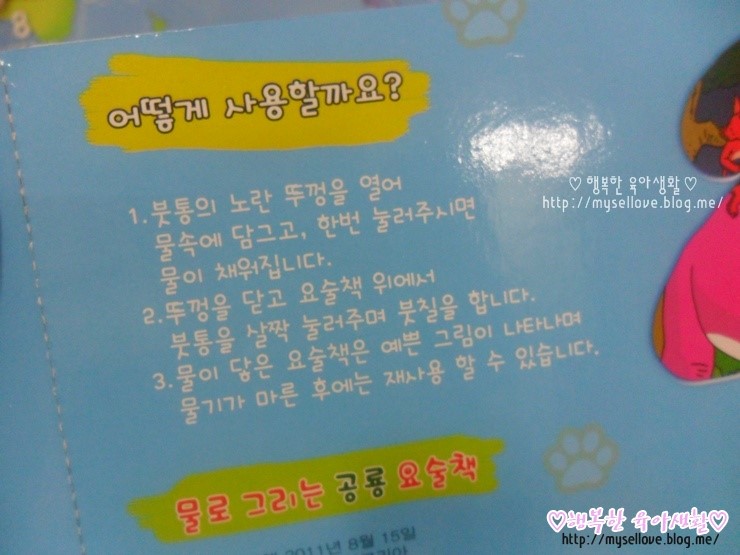 8
어떻게 사용할까요?
♡ 행복한 육아생활 ♡
http://mysellove.blog.me/
1.붓통의 노란 뚜껑을 열어
물속에 담그고, 한번 눌러주시면
물이 채워집니다.
2.뚜껑을 닫고 요술책 위에서
붓통을 살짝 눌러주며 붓칠을 합니다.
3.물이 닿은 요술책은 예쁜 그림이 나타나며
물기가 마른 후에는 재사용 할 수 있습니다.
물로 그리는 공룡 요술책
2011년 8월 15일
♡행복한 육아생활♡
http://mysellove.blog.me/